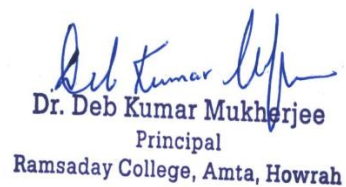 Deb Kumar
Dr. Deb Kumar Mukherjee
Principal
Ramsaday College, Amta, Howrah